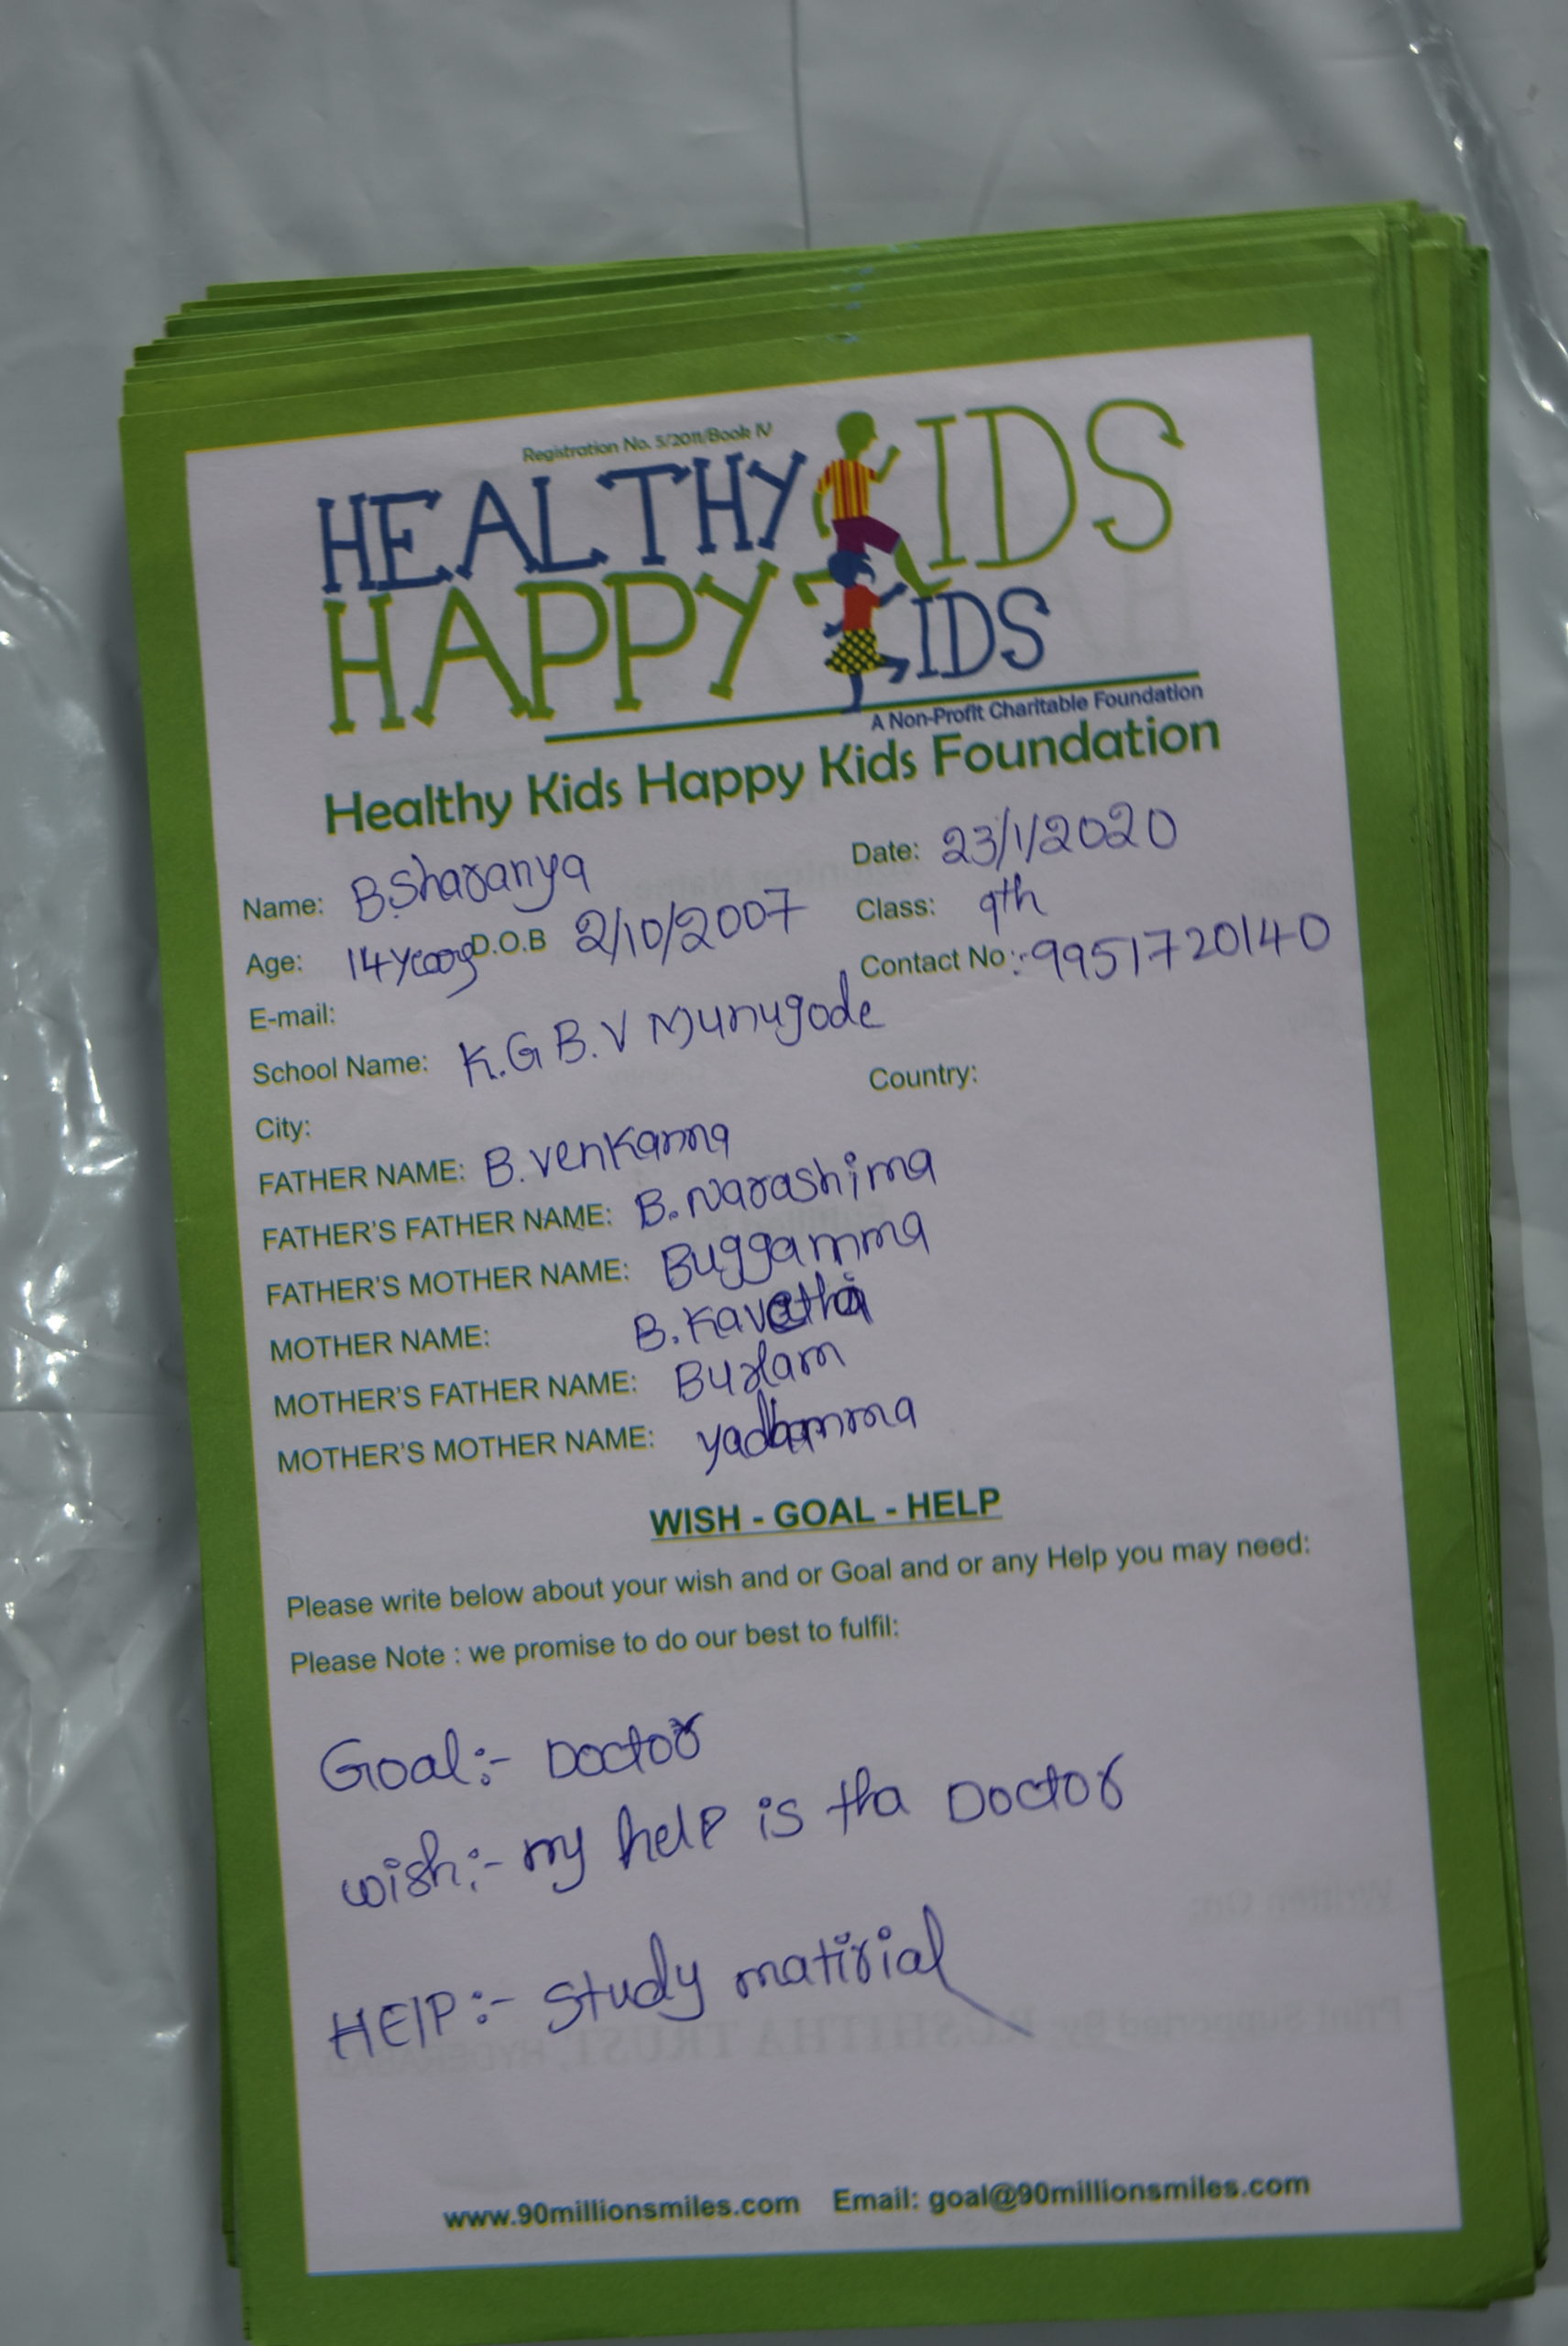 Registration No. 5/2011/Book IV
HEALTHY KIDS
HAPPY KIDS
A Non-Profit Charitable Foundation
Healthy Kids Happy Kids Foundation
Name: B.Sharanya Date: 23/1/2020
Age: 14 years D.O.B 2/10/2007 Class: 9th
E-mail: Contact No :- 9951720140
School Name: K.G B.V Munugode
City: Country:
FATHER NAME: B.venkanna
FATHER'S FATHER NAME: B.Narashima
FATHER'S MOTHER NAME: Buggamma
MOTHER NAME: B.Kavetha
MOTHER'S FATHER NAME:
MOTHER'S MOTHER NAME: yadhamma
WISH - GOAL - HELP
Please write below about your wish and or Goal and or any Help you may need:
Please Note : we promise to do our best to fulfil:
Goal:- Doctor
wish:- my help is tha Doctor
HElP:- Study matirial
www.90millionsmiles.com Email: goal@90millionsmiles.com